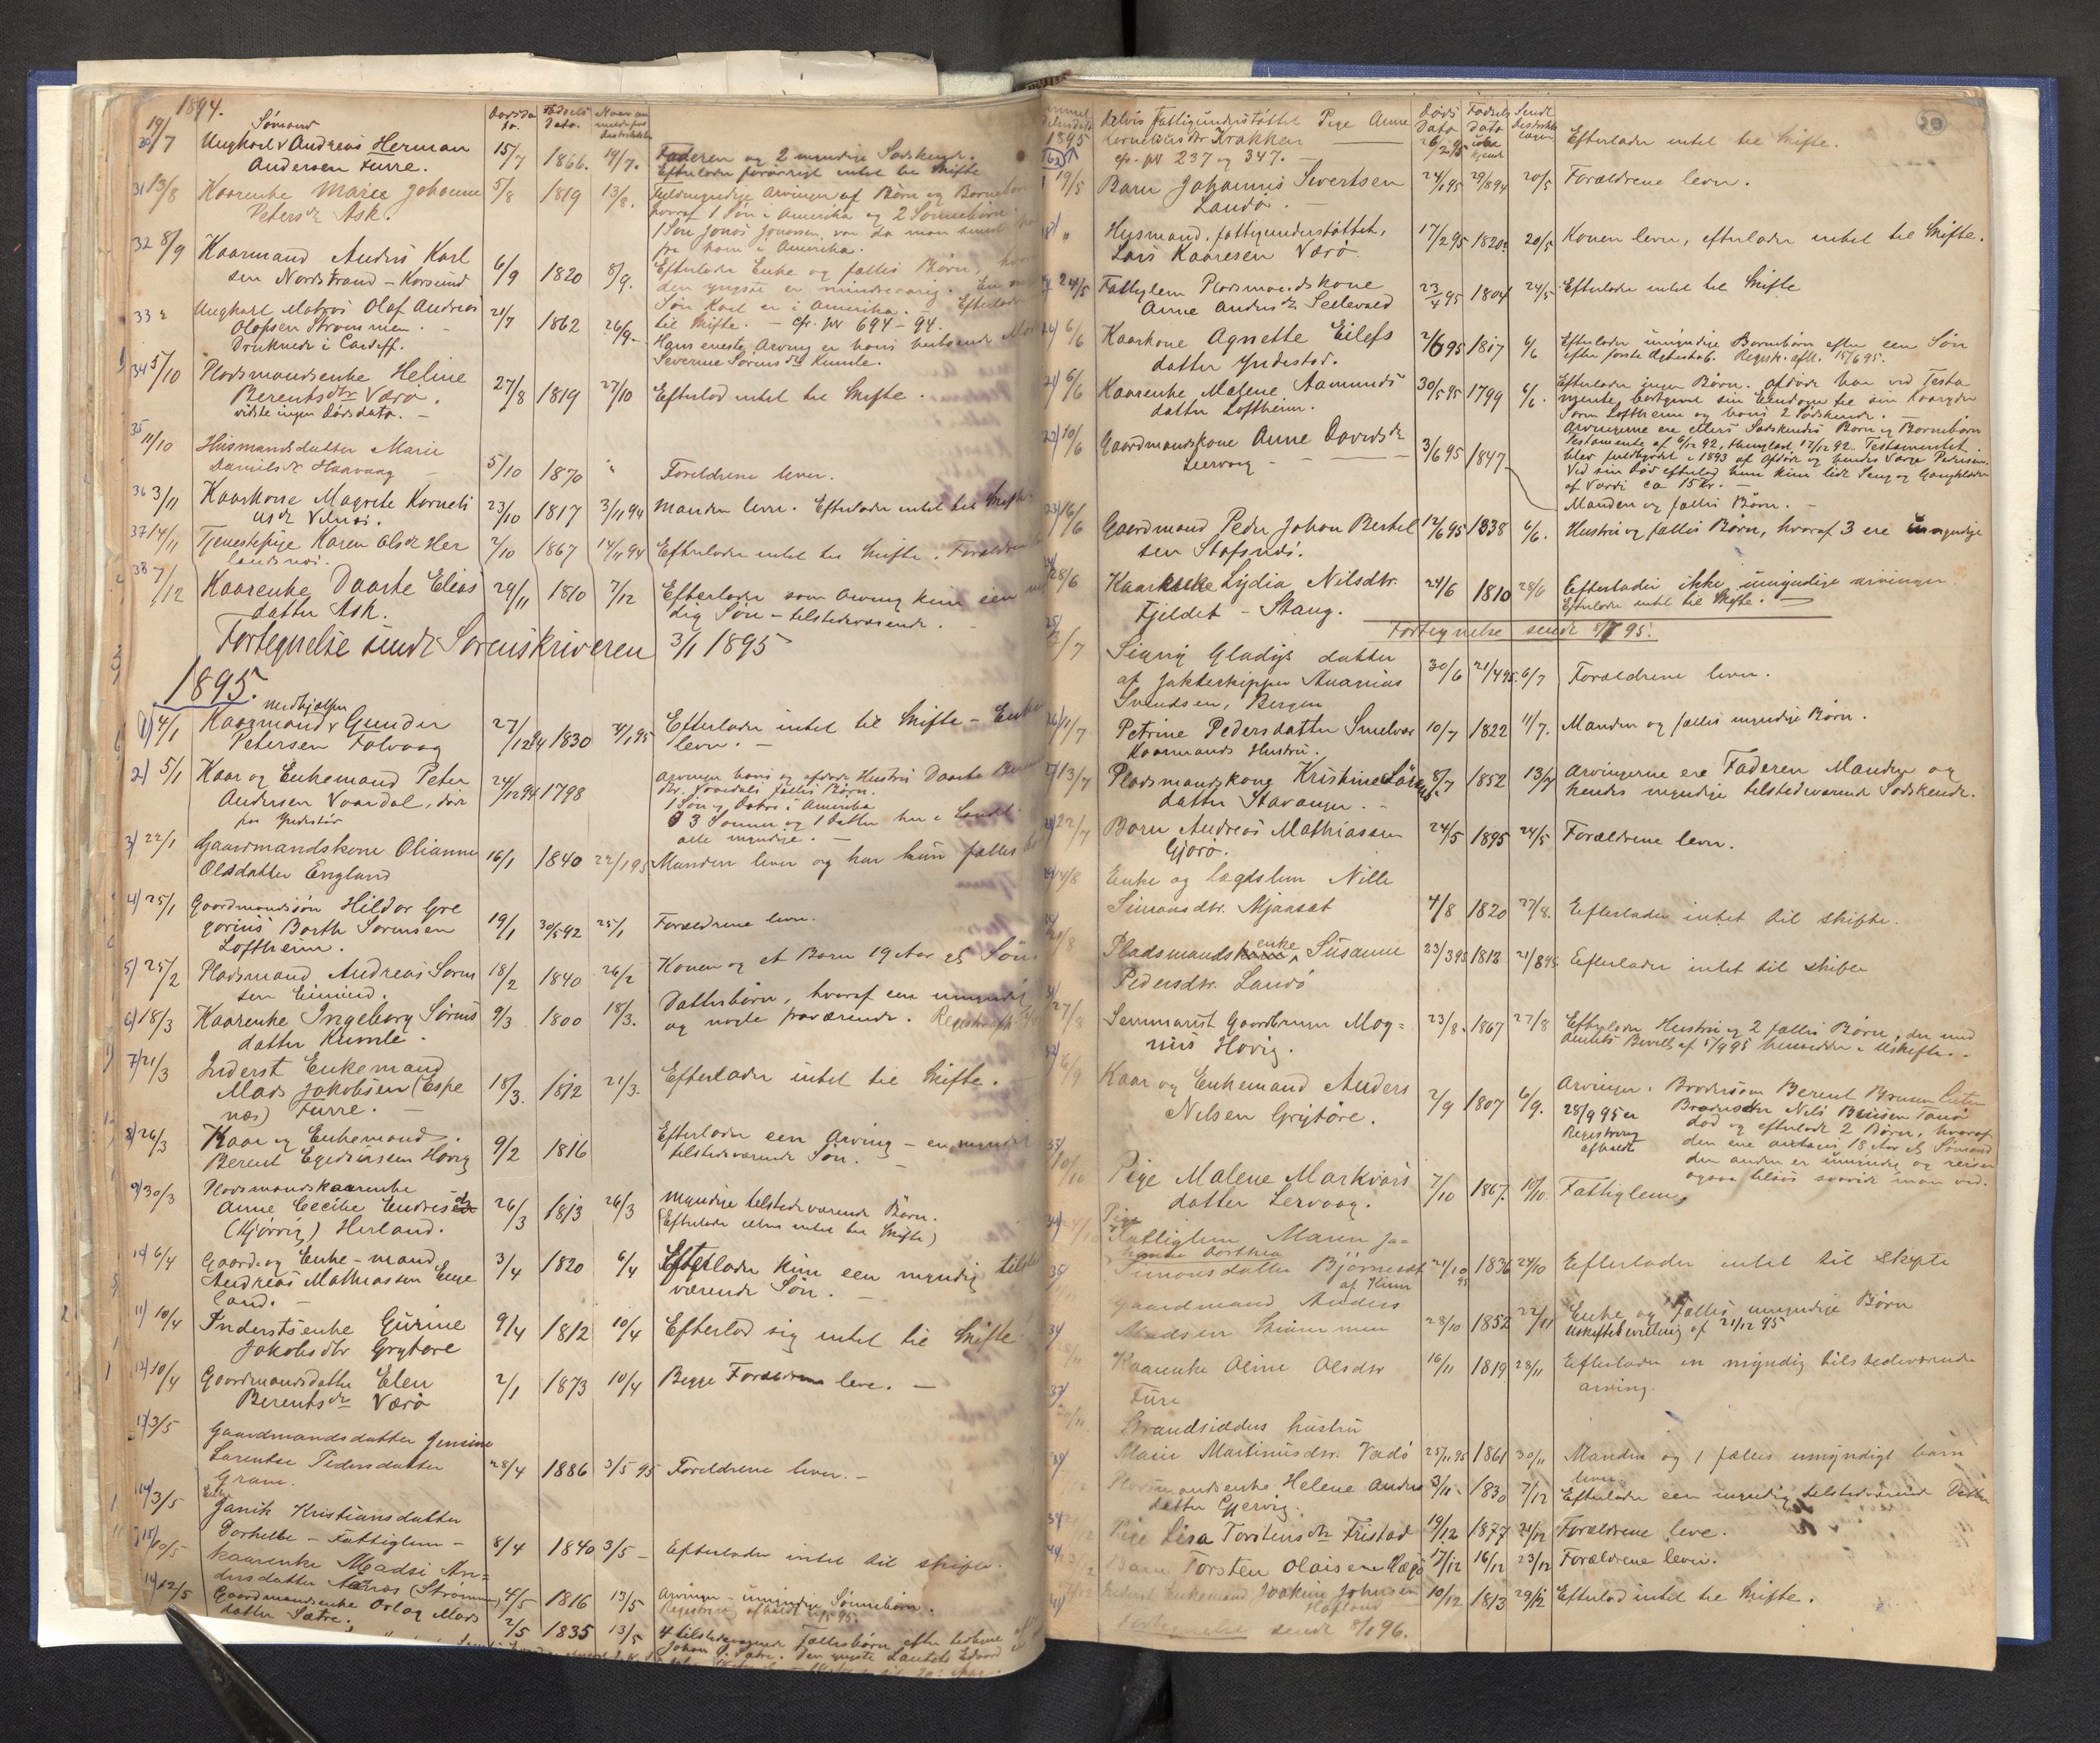 1894.
Dødsda
to.
Fødsels
Data.
19/7
30/7
Sømand
Ungkarl Andreas Herman
Andersen Furre.
15/7 1866. 19/7.
Faderen og 2 myndige Sødskende.
Efterlader forøvrigt intet til Skifte
31 13/8 Kaarenke Marie Johanne
Petersdr Ask.
5/8 1819 13/8.
Fuldmyndige Arvinger af Børn og Børnebørn
hvoraf 1 Søn i Amerika og 2 Sønnebørn.
1 Søn Jonas Jonassen, var da man sidst
fra ham i Amerika.
32 8/9 Kaarmand Anders Karl
sen Nordstrand - Korssund
6/9 1820 8/9.
Efterlader Enke og fælles Børn,
den yngste er mindreaarig.
Søn Karl er i Amerika. - Efterlader
til Skifte. - cfr. pr 694-94.
33 Ungkarl Matros Olaf Andreas
Olafsen Strømmen.
Druknede i Cardiff.
21/7 1862 26/9
Hans eneste Arving er hans
Severine Sørensdr Kumle.
34 5/10 Pladsmandsenke Heline
Berentsdtr Værø.
vidste ingen Dødsdata.
27/8 1819 27/10 Efterlod intet til Skifte.
35 11/10 Husmandsdatter Marie
Danielsdr Haavaag
5/10 1870 " Forældrene lever.
36 3/11 Kaarkone Magrete Korneli
usdr Vilnæs.
23/10 1817 3/11 94 Manden lever. Efterlader intet til Skifte
37 14/11 Tjenestepige Karen Olsdr Her
landsnæs.
2/10 1867 14/11 94 Efterlader intet til Skifte. Forældrene
38 7/12 Kaarenke Daarte Elias
datter Ask.
29/11 1810 7/12 Efterlader som Arving kun een
dig Søn - tilstedeværende.
Fortegnelse sendt Sorenskriveren 3/1 1895
1895.
1) 4/1 Kaarmand Gunder
Petersen Folvaag
27/12 94 1830 4/1 95 Efterlader intet til Skifte - Enken
lever. -
2) 5/1 Kaar og Enkemand Peter
Andersen Vaardal, død
paa Yndestad
24/12 94 1798
Arvinger hans og afdøde Hustru Daarte
dtr. Vaardals fælles Børn.
1 Søn og Datter i Amerika
3 Sønner og 1 Datter her i Landet
alle myndige. -
3) 22/1 Gaardmandskone Olianne
Olsdatter England
16/1 1840 22/1 95 Manden lever og har kun fælles
4) 25/1 Gaardmandssøn Hildor Gre
gorius Barth Sørensen
Loftheim.
19/1 30/5 92 25/1 Forældrene lever.
5) 25/2 Pladsmand Andreas Søren
sen
18/2 1840 26/2 Konen og et Barn 19 Aar gl Søn.
6) 18/3 Kaarenke Ingeborg Sørens
datter Kumle.
9/3 1800 18/3. Datterbørn, hvoraf een umyndig
og nogle fraværende.
7) 21/3 Inderst Enkemand
Mads Jakobsen (Espe
næs) Furre.
18/3. 1812 21/3. Efterlader intet til Skifte.
8) 26/3 Kaar og Enkemand
Berent Egedensen Høvig
9/2 1816 Efterlader een Arving - en myndig
tilstedeværende Søn.
9) 30/3 Pladsmandskaarenke
Anne Cecilie Endresdr
(Kjørvig) Herland.
26/3 1813 26/3 Myndige tilstedeværende Børn.
(Efterlader ellers intet til Skifte)
10) 6/4 Gaard- og Enke-mand
Andreas Mathiassen Enge
land.
3/4 1820 6/4 Efterlader kun een myndig tilste
værende Søn.
11) 10/4 Inderstsenke Gurine
Jakobsdtr Grytøre
9/4 1812 10/4 Efterlod sig intet til Skifte
12) 10/4 Gaardmandsdatter Elen
Berentsdr Værø
2/1 1873 10/4 Begge Forældrene leve. -
13) 3/5 Gaardmandsdatter Jensine
Larentse Pedersdatter
Gram.
28/4 1886 3/5 95 Forældrene lever. -
14) 3/5 Enke
Janik Kristiansdatter
- Fattiglem -
8/4 1840 3/5 - Efterlader intet til skifte.
15) 10/5 Kaarenke Madsi An=
dersdatter
4/5 1816 13/5 Arvinger - umyndige Sønnebørn.
16) 12/5 Gaardmandsenke Orlaug Mads
datter Sætre.
2/5 1835 13/5 4 tilstedeværende Fællesbørn efter
1895
Delvis Fattigunderstøttet Pige Anne
Korneliusdtr Krakken
cfr. pr 237 og 347.
Døds
Data
Fødsels
data
Sendt
26/2 95 ikke
kjendt
Efterlader intet til Skifte.
19/5 Barn Johannes Sivertsen
Landø.
24/1 95 29/8 94 20/5 Forældrene lever.
" Husmand, fattigunderstøttet,
Lars Kaaresen Værø.
17/2 95 1820 20/5 Konen lever, efterlader intet til Skifte.
24/5 Fattiglem Pladsmandskone
Anne Andersdr Sellevold
23/4 95 1804 24/5 Efterlader intet til Skifte
20) 6/6 Kaarkone Agnette Eilefs
datter Yndestad.
2/6 95 1817 6/6 Efterlader umyndige Børnebørn efter een Søn
efter første Ægteskab. Registr. afh. 15/6 95.
21) 6/6 Kaarenke Malene Aamunds
datter Loftheim.
30/5 95 1799 6/6. Efterlader ingen Børn. Afdøde har ved Testa
mente bortgivet sin Eiendom til sin
Søren Loftheim og hans 2 Sødskende. -
Arvingerne ere ellers Sødskendes Børn og Børnebørn
Testamente af 6/12 92, thinglæst 17/12 92. Testamentet
blev fuldbyrdet i 1893 af Afdøde og hendes Værge Pedersen.
Ved sin Død efterlod hun kun lidt Seng og Gangklæder
af Værdi ca 15 Kr. -
22) 10/6 Gaardmandskone Anne Davidsdr
Leervaag
3/6 95 1847 Manden og fælles Børn. -
23) 16/6 Gaardmand Peder Johan Bertel
sen Stafsnes.
12/6 95 1838 6/6. Hustru og fælles Børn, hvoraf 3 ere umyndige
28/6 Kaarenke Lydia Nilsdtr.
Fjeldet - Stang.
24/6 1810 28/6 Efterlader ikke umyndige arvinger
Efterlader intet til Skifte.
Fortegnelse sendt 8/7 95.
25) /7 Signy Gladys datter
af Jakteskipper Ananias
Svendsen, Bergen
30/6 21/4 95 6/7 Forældrene lever.
26) 11/7 Petrine Pedersdatter Smelvær
Kaarmands Hustru.
10/7 1822 11/7. Manden og fælles myndige Børn.
27) 13/7 Pladsmandskone Kristine Lars
datter Stavanger. -
8/7 1852 13/7 Arvingerne ere Faderen Manden og
hendes myndige tilstedeværende Sødskende.
28) 22/7 Barn Andreas Mathiassen
Gjørø.
24/5 1895 24/5 Forældrene lever.
/8 Enke og lægdslem Nille
Simonsdtr. Mjaasæt
4/8 1820 27/8. Efterlader intet til skifte.
/8 Pladsmandsenke Susanne
Pedersdtr. Landø
23/3 95 1812 21/8 95 Efterlader intet til skifte
27/8 Seminarist Gaardbruger Mag=
nus Høvig.
23/8 1867 27/8 Efterlader Hustru og 2 fælles Børn, der med
Amtets Bevill. af 5/9 95 hensidder i Uskifte. -
6/9 Kaar og Enkemand Anders
Nilsen Grytøre.
2/9 1807 6/9. Arvinger. Brodersøn Berent
28/9 95 er
Registrering
afholdt
død og efterlod 2 Børn, hvoraf
den ene antages 18 Aar gl Sømand
den anden er umyndig og reiser
33) 10/10 Pige Malene Markvars
datter Lervaag.
7/10 1867. 10/10. Fattiglem,
34) Pige
Fattiglem Maren Jo=
hanne Dorthea
Simonsdatter Bjørnesæt
af Kinn
21/10 95 1836 24/10 Efterlader intet til skifte
35) Gaardmand Anders
Madsen
28/10 1852 22/11 Enke og fælles umyndige Børn
Uskiftebevilling af 21/12 95
Kaarenke Oline Olsdtr
Fure
16/11 1819 28/11 Efterlader en myndig tilstedeværende
arving.
37) Strandsidders hustru
Marie Martinusdtr. Vadø
25/11 95 1861 30/11 Manden og 1 fælles umyndigt barn
lever.
Pladsmandsenke Helene Anders
datter Gjervig.
3/11 1830 7/12 Efterlader een myndig tilstedeværende Datter
39) Pige Lisa Torstensdr Fristad
19/12 1877 21/12 Forældrene leve.
40) Barn Torsten Olaisen
17/12 16/12 23/12 Forældrene lever.
41) Inderst Enkemand Joakim Johnsen
Høfland
10/12 1813 29/12 Efterlod intet til Skifte.
Fortegnelse sendt 8/1 96.